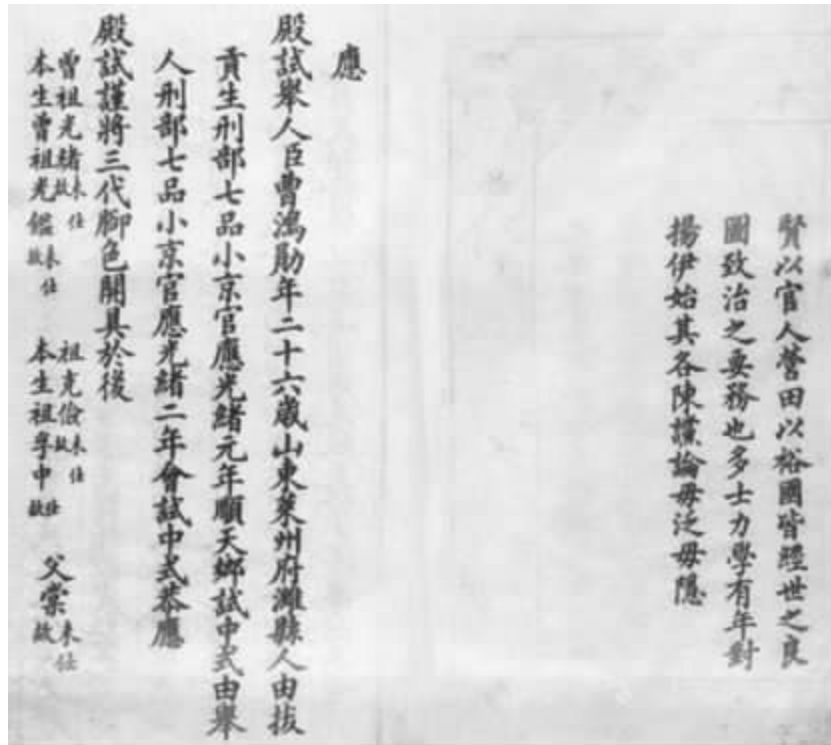 賢以官人營田以裕國皆經世之良
圖致治之要務也多士力學有年對
揚伊始其各陳讜論毋泛毋隱
應
殿試舉人臣曹鴻勛年二十六歲山東萊州府濰縣人由拔
貢生刑部七品小京官應光緒元年順天鄉試中式由舉
人刑部七品小京官應光緒二年會試中式恭應
殿試謹將三代腳色開具於後
曾祖光緒未仕故
本生曾祖光鑑未仕故
祖克儉未仕故
本生祖中仕故
父棠未仕故